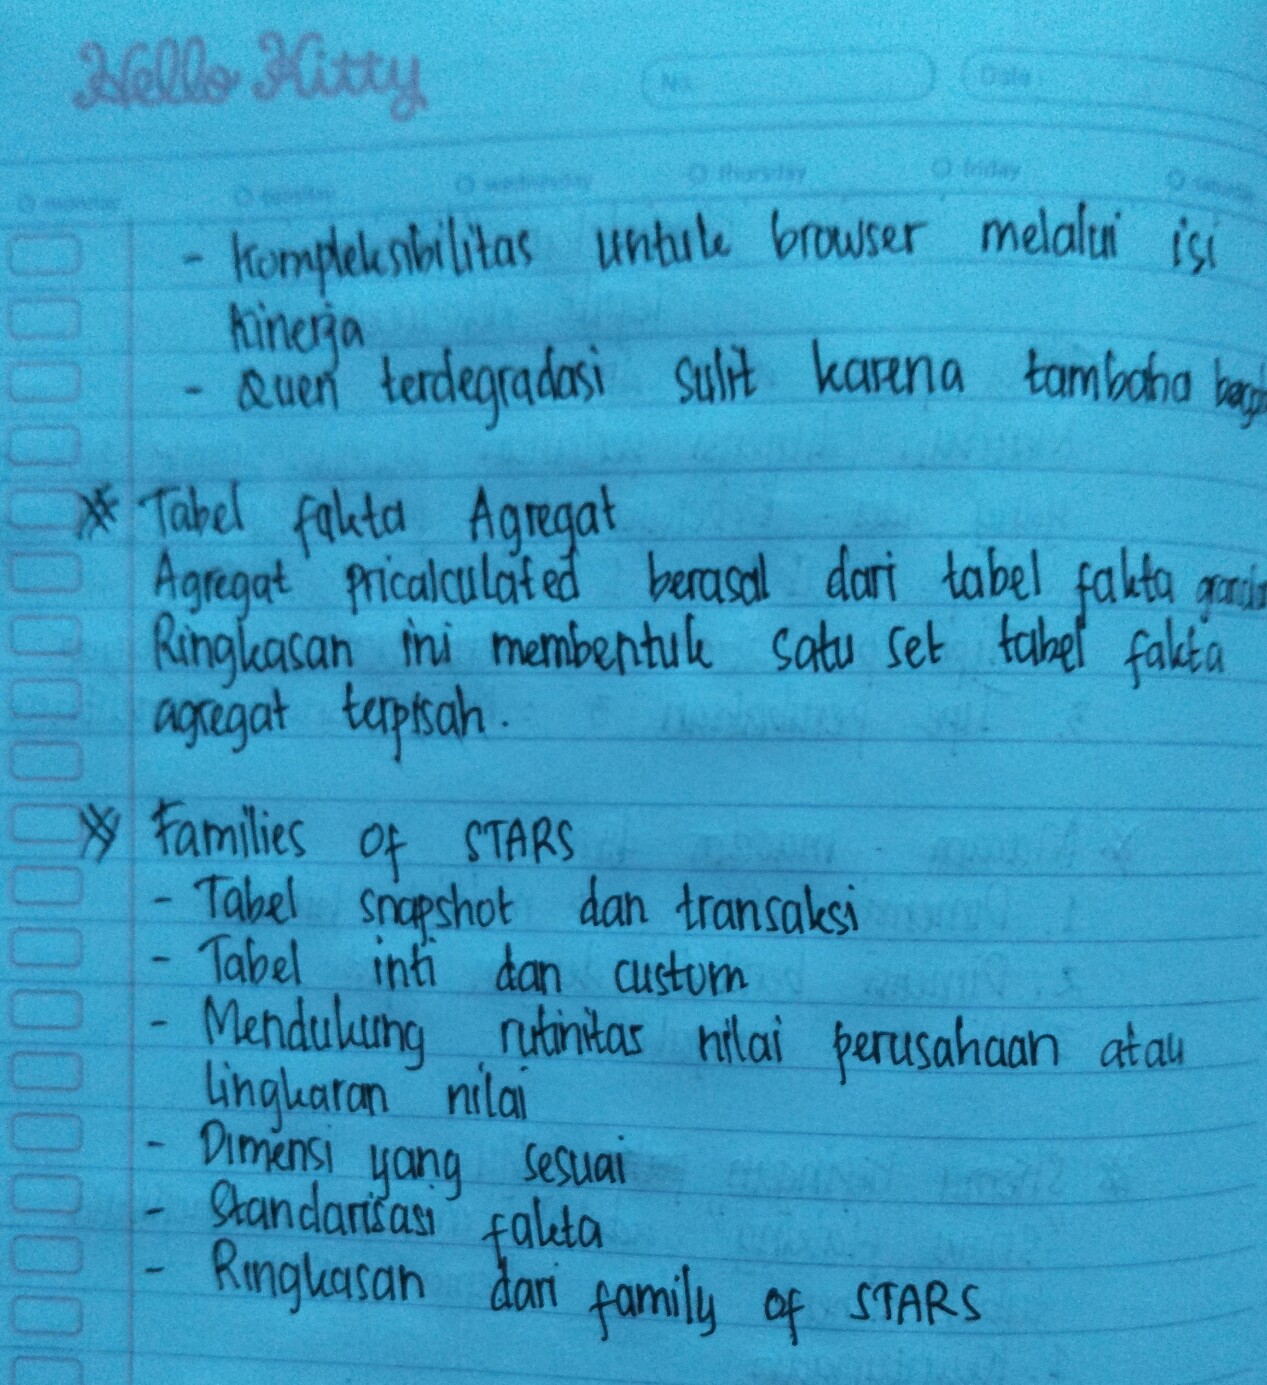 Hello Kitty
No.
Date
monday tuesday wednesday thursday friday
- Kompleksibilitas untuk browser melalui isi
Kinerja
- Queri terdegradasi sulit karena tambaha
* Tabel fakta Agregat
Agregat pricalculated berasal dari tabel fakta
Ringkasan ini membentuk satu set tabel fakta
agregat terpisah.
* Families of STARS
- Tabel snapshot dan transaksi
- Tabel inti dan custom
- Mendukung rutinitas nilai perusahaan atau
lingkaran nilai
- Dimensi yang sesuai
- Standarisasi fakta
- Ringkasan dari family of STARS